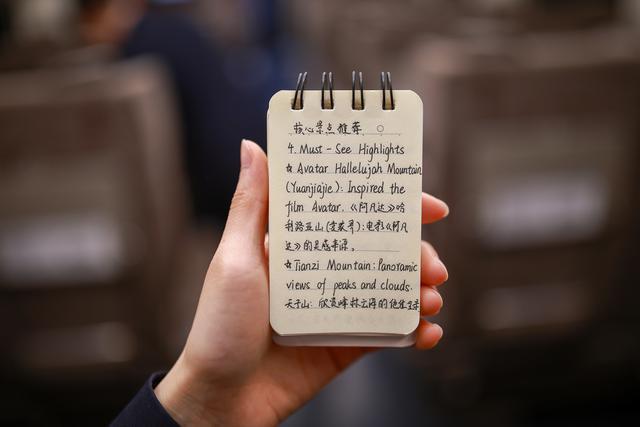 核心景点推荐
4. Must-See Highlights
☆ Avatar Hallelujah Mountain
(Yuanjiajie): Inspired the
film Avatar. 《阿凡达》哈
利路亚山(袁家界):电影《阿凡
达》的灵感来源。
☆ Tianzi Mountain: Panoramic
views of peaks and clouds.
天子山: 欣赏峰林云海的绝佳